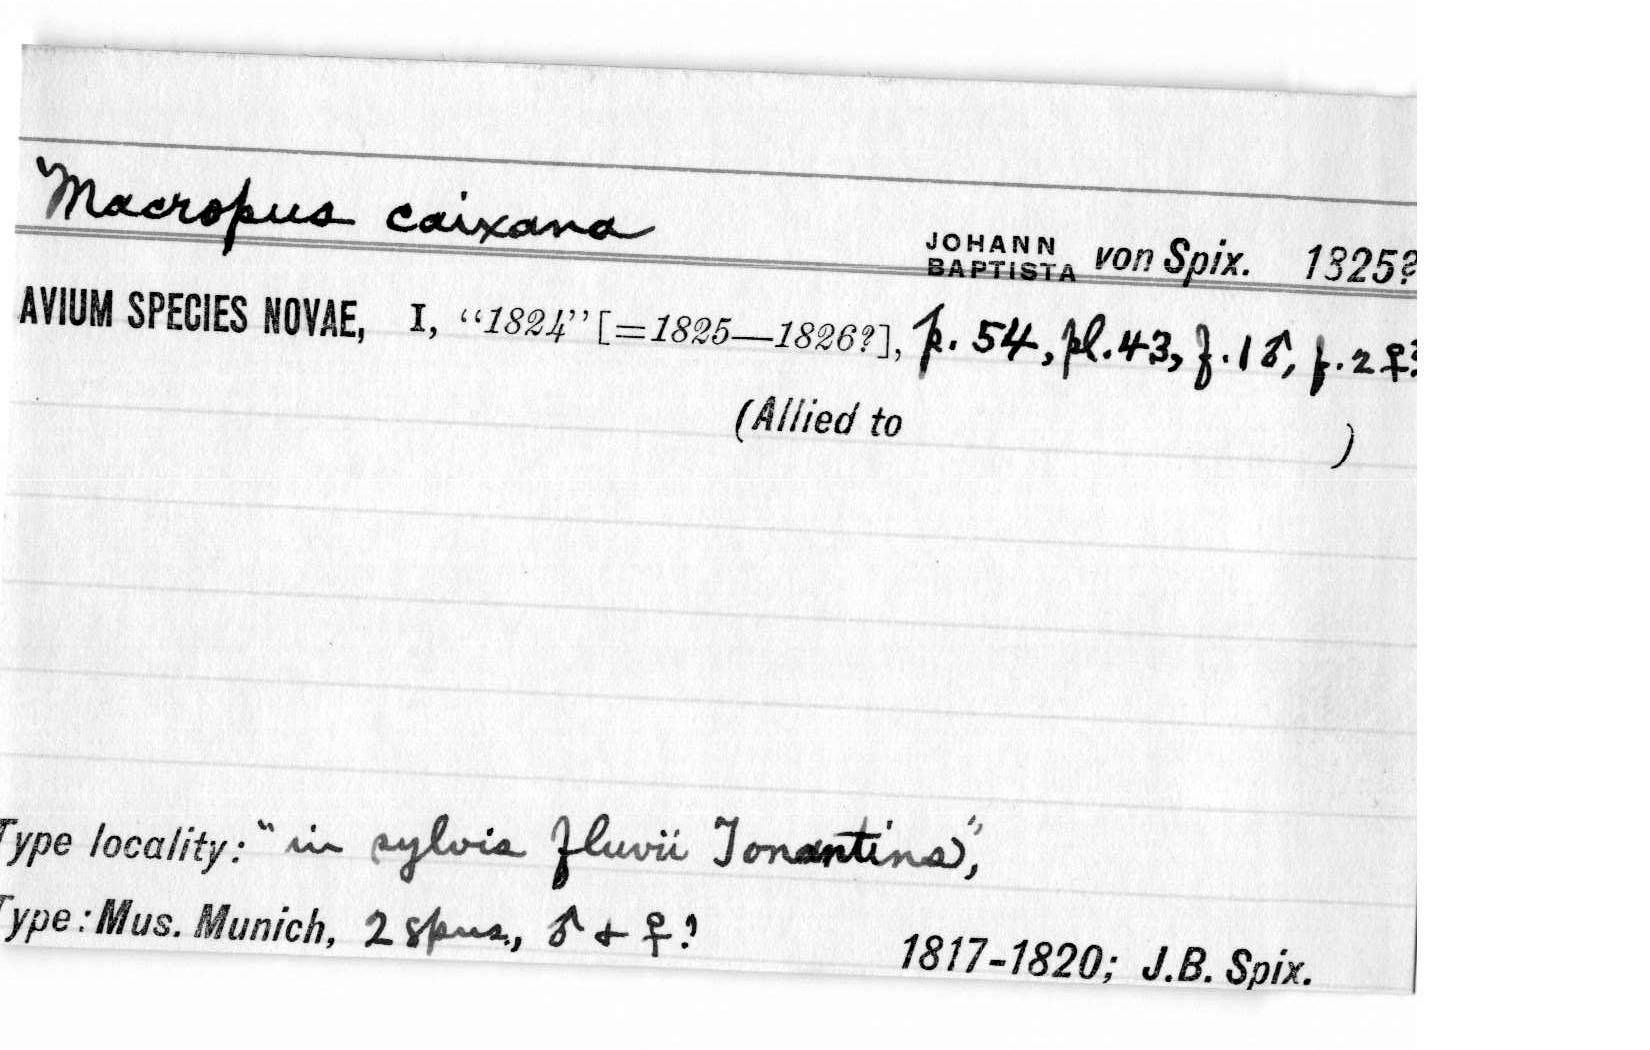 Macropus caixana
JOHANN BAPTISTA von Spix. 1825?
AVIUM SPECIES NOVAE, I, “1824” [=1825—1826?], p. 54, pl. 43, f. 1 ♂, f. 2 ♀?
(Allied to )
Type locality: "in sylvis fluvii Tonantins",
Type: Mus. Munich, 2 spns., ♂ + ♀?
1817-1820; J.B. Spix.